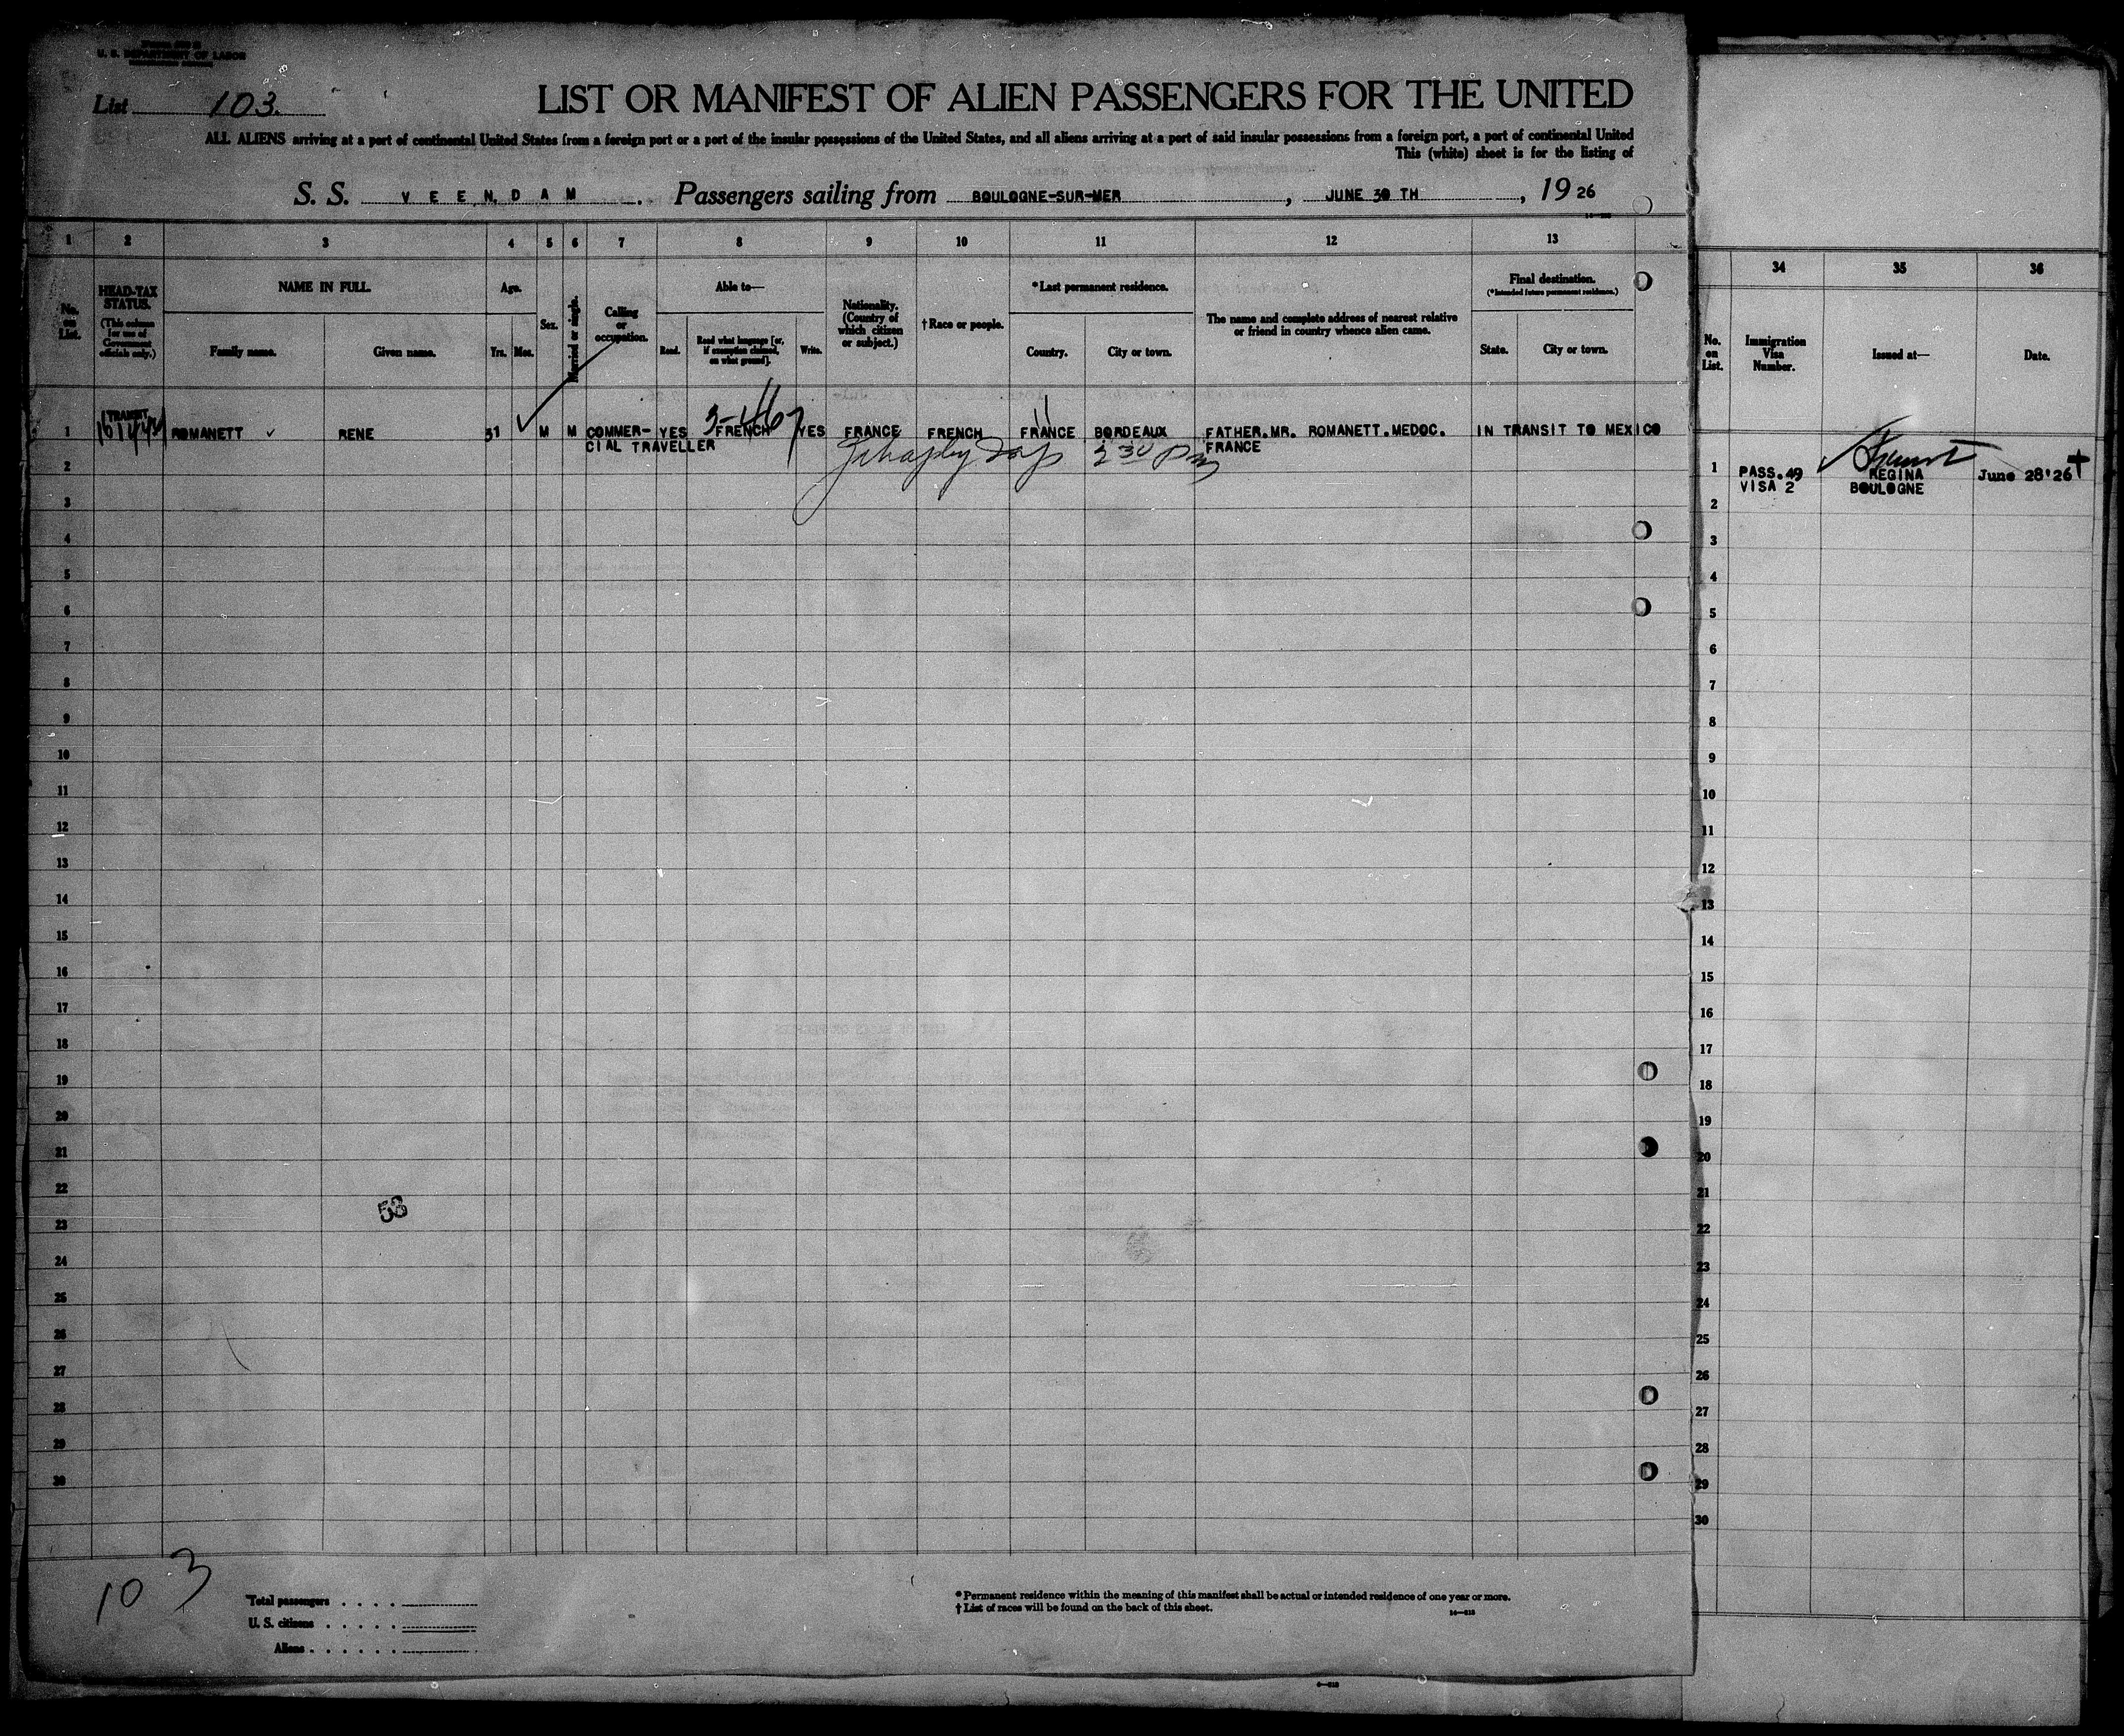 U. S. DEPARTMENT OF LABOR
List 103.
LIST OR MANIFEST OF ALIEN PASSENGERS FOR THE UNITED
ALL ALIENS arriving at a port of continental United States from a foreign port or a port of the insular possessions of the United States, and all aliens arriving at a port of said insular possessions from a foreign port, a port of continental United
This (white) sheet is for the listing of
S. S. VEENDAM. Passengers sailing from BOULOGNE-SUR-MER, JUNE 30 TH, 1926
1 2 3 4 5 6 7 8 9 10 11 12 13
No. on List.
HEAD-TAX STATUS.
(This column for use of Government officials only.)
NAME IN FULL.
Family name. Given name.
Age.
Yrs. Mos.
Sex.
Married or single.
Calling or occupation.
Able to—
Read. Read what language [or, if exemption claimed, on what ground]. Write.
Nationality. (Country of which citizen or subject.)
†Race or people.
*Last permanent residence.
Country. City or town.
The name and complete address of nearest relative or friend in country whence alien came.
Final destination.
(*Intended future permanent residence.)
State. City or town.
34 35 36
No. on List.
Immigration Visa Number.
Issued at—
Date.
1 TRANSIT ROMANETT RENE 31 M M COMMER- YES FRENCH YES FRANCE FRENCH FRANCE BORDEAUX FATHER.MR. ROMANETT.MEDOC. IN TRANSIT TO MEXICO
CIAL TRAVELLER FRANCE
2 30 pm
1 PASS.49 REGINA June 28'26
VISA 2 BOULOGNE
2
3
4
5
6
7
8
9
10
11
12
13
14
15
16
17
18
19
20
21
22
23
24
25
26
27
28
29
30
2
3
4
5
6
7
8
9
10
11
12
13
14
15
16
17
18
19
20
21
22
23
24
25
26
27
28
29
30
58
103
Total passengers
U. S. citizens
Aliens
*Permanent residence within the meaning of this manifest shall be actual or intended residence of one year or more.
†List of races will be found on the back of this sheet.